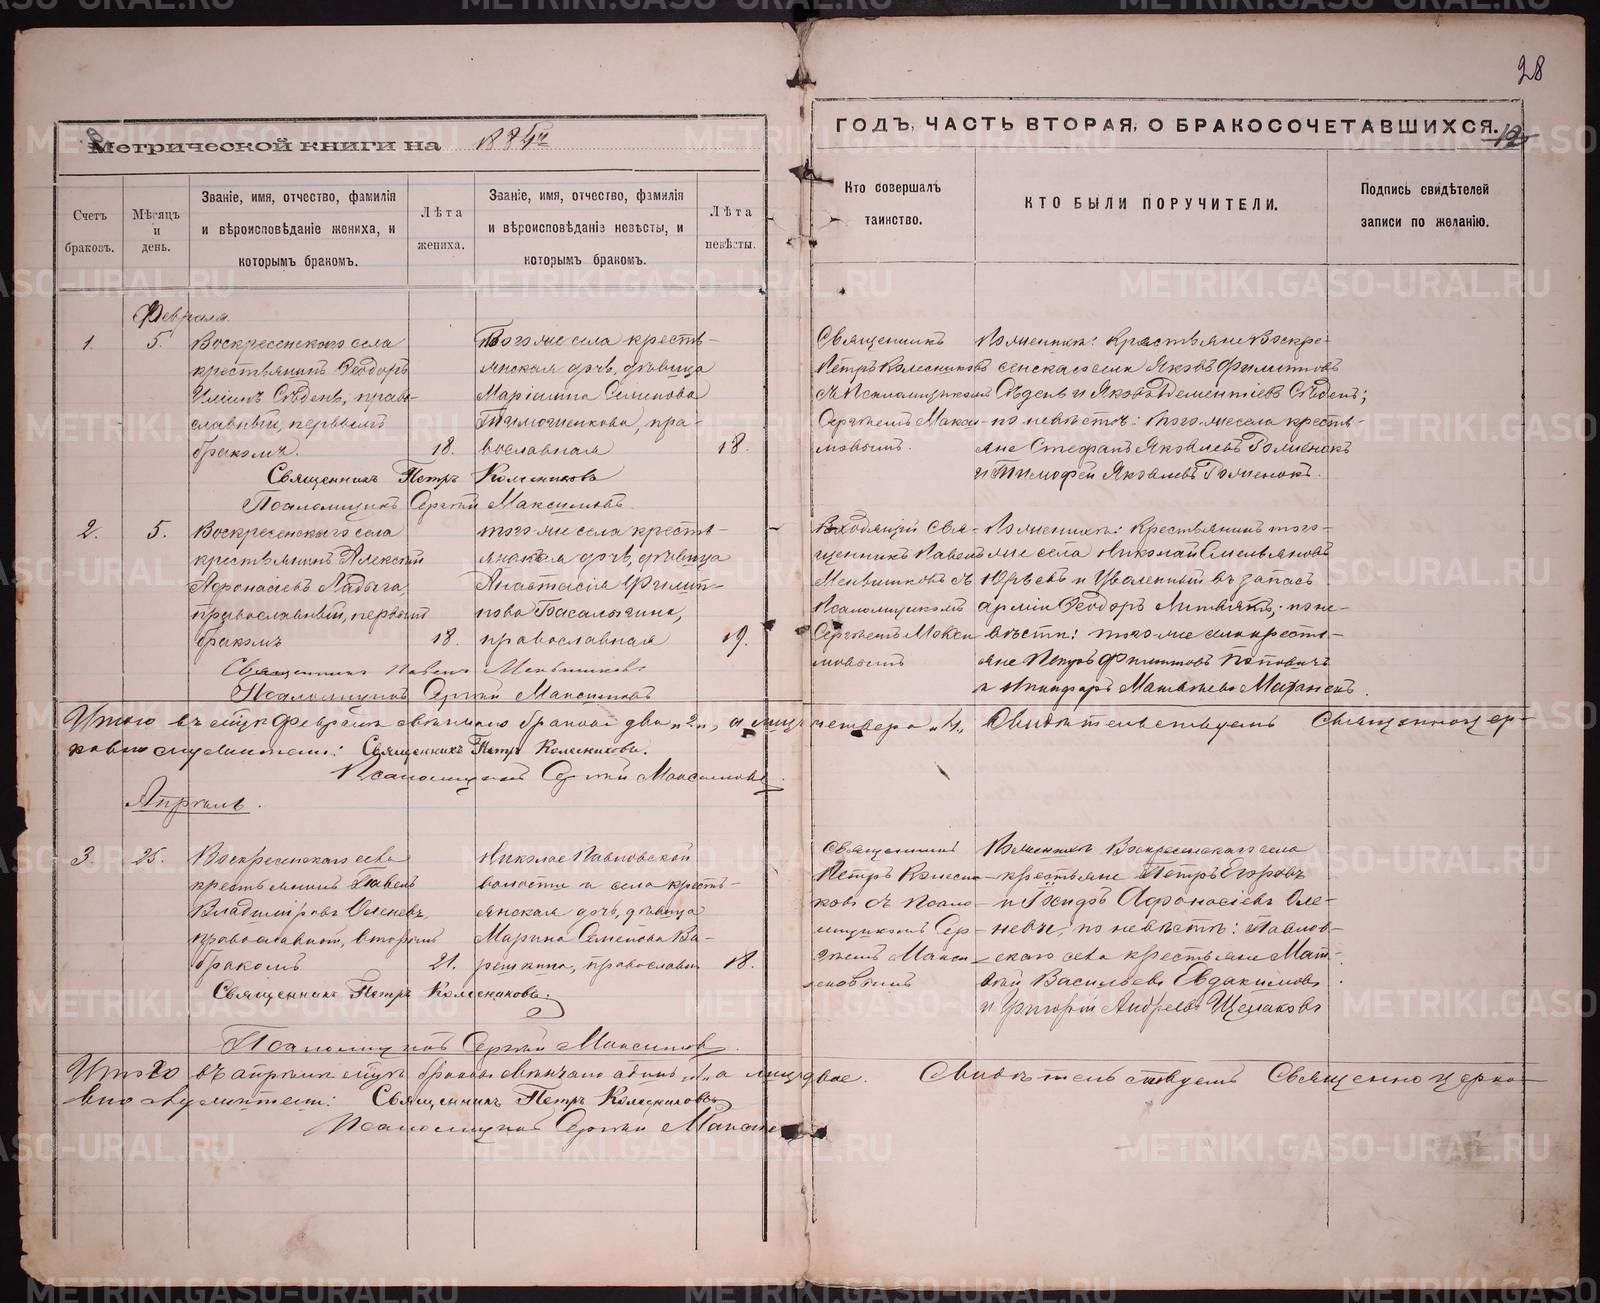 28
Метрической книги на 1884й
ГОДЪ, ЧАСТЬ ВТОРАЯ, О БРАКОСОЧЕТАВШИХСЯ.
12
Счетъ браковъ.
Мѣсяцъ и день.
Званіе, имя, отчество, фамилія
и вѣроисповѣданіе жениха, и
которымъ бракомъ.
Лѣта жениха.
Званіе, имя, отчество, фамилія
и вѣроисповѣданіе невѣсты, и
которымъ бракомъ.
Лѣта невѣсты.
Кто совершалъ
таинство.
КТО БЫЛИ ПОРУЧИТЕЛИ.
Подпись свидѣтелей
записи по желанію.
Февраля
1.
5.
Воскресенскаго села
крестьянинъ Ѳеодоръ
Ильинъ Сѣденъ, право-
славный, первымъ
бракомъ.
18.
Того же села кресть-
янская дочь, дѣвица
Маріанна Семенова
Тимошенкова, пра-
вославная
18.
Священникъ
Петръ Колесниковъ
съ Псаломщикомъ
Сергѣемъ Макси-
мовымъ.
По женихѣ: Крестьяне Воскре-
сенскаго села Яковъ Филиповъ
Сѣденъ и Яковъ Дементіевъ Сѣденъ;
по невѣстѣ: того же села кресть-
яне Стефанъ Яковлевъ Роменокъ
и Тимофей Яковлевъ Роменокъ.
Священникъ Петръ Колесниковъ
Псаломщикъ Сергѣй Максимовъ
2.
5.
Воскресенскаго села
крестьянинъ Алексѣй
Афонасіевъ Ладыга,
православный, первымъ
бракомъ
18.
того же села кресть-
янская дочь, дѣвица
Анастасія Филип-
пова Басалыгина,
православная
19.
Входящій Свя-
щенникъ Павелъ
Меньшиковъ съ
Псаломщикомъ
Сергѣемъ Макси-
мовымъ
По женихѣ: Крестьянинъ того-
же села Николай Емельяновъ
Юрьевъ и Уволенный въ запасъ
арміи Ѳеодоръ Литвякъ; по не-
вѣстѣ: того же села кресть-
яне Петръ Филиповъ Поповичъ
и Никифоръ Матвѣевъ Маханекъ.
Священникъ Павелъ Меньшиковъ
Псаломщикъ Сергѣй Максимовъ
Итого въ м-цѣ Февралѣ вѣнчано браковъ два „2„, а лицъ четверо „4„ Свидѣтельствуемъ Священноцер-
ковнослужители: Священникъ Петръ Колесниковъ.
Псаломщикъ Сергѣй Максимовъ.
Апрѣль.
3.
25.
Воскресенскаго села
крестьянинъ Павелъ
Владиміровъ Оленевъ,
православный, вторымъ
бракомъ
21.
Николае-Павловской
волости и села кресть-
янская дочь, дѣвица
Марина Семенова Ва-
решкина, православн
18.
Священникъ
Петръ Колесни-
ковъ съ Псало-
мщикомъ Сер-
гѣемъ Макси-
мовымъ
По женихѣ Воскресенскаго села
крестьяне Петръ Егоровъ
и Исидръ Афонасіевъ Оле-
невы, по невѣстѣ: Павлов-
скаго села крестьяне Мат-
вѣй Васильевъ Евдакимовъ
и Григорій Андреевъ Щелаковъ
Священникъ Петръ Колесниковъ.
Псаломщикъ Сергѣй Максимовъ.
Итого въ апрѣлѣ м-цѣ браковъ вѣнчано одинъ „1„ а лицъ двое. Свидѣтельствуемъ Священноцерко-
внослужители: Священникъ Петръ Колесниковъ
Псаломщикъ Сергѣй Максимо
METRIKI.GASO-URAL.RU